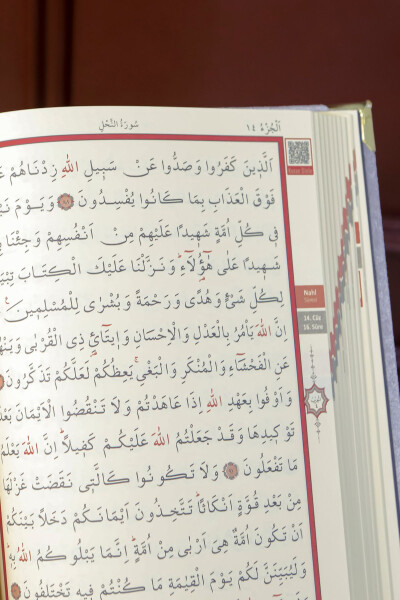 سُورَةُ النَّحْلِ
اَلْجُزْءُ ١٤
اَلَّذِينَ كَفَرُوا وَصَدُّوا عَنْ سَبِيلِ اللّٰهِ زِدْنَاهُمْ
فَوْقَ الْعَذَابِ بِمَا كَانُوا يُفْسِدُونَ ﴿٨٨﴾ وَيَوْمَ
فِى كُلِّ اُمَّةٍ شَهِيدًا عَلَيْهِمْ مِنْ اَنْفُسِهِمْ وَجِئْنَا
شَهِيدًا عَلٰى هٰٓؤُلَٓاءِ وَنَزَّلْنَا عَلَيْكَ الْكِتَابَ
لِكُلِّ شَىْءٍ وَهُدًى وَرَحْمَةً وَبُشْرٰى لِلْمُسْلِمِينَ
اِنَّ اللّٰهَ يَأْمُرُ بِالْعَدْلِ وَالْاِحْسَانِ وَاِيتَٓائِ ذِى الْقُرْبٰى
عَنِ الْفَحْشَٓاءِ وَالْمُنْكَرِ وَالْبَغْىِ يَعِظُكُمْ لَعَلَّكُمْ تَذَكَّرُونَ
وَاَوْفُوا بِعَهْدِ اللّٰهِ اِذَا عَاهَدْتُمْ وَلَا تَنْقُضُوا الْاَيْمَانَ
تَوْكِيدِهَا وَقَدْ جَعَلْتُمُ اللّٰهَ عَلَيْكُمْ كَفِيلًا اِنَّ اللّٰهَ
مَا تَفْعَلُونَ ﴿٩١﴾ وَلَا تَكُونُوا كَالَّتِى نَقَضَتْ غَزْلَهَا
مِنْ بَعْدِ قُوَّةٍ اَنْكَاثًا تَتَّخِذُونَ اَيْمَانَكُمْ دَخَلًا بَيْنَكُمْ
اَنْ تَكُونَ اُمَّةٌ هِىَ اَرْبٰى مِنْ اُمَّةٍ اِنَّمَا يَبْلُوكُمُ اللّٰهُ بِهِ
وَلَيُبَيِّنَنَّ لَكُمْ يَوْمَ الْقِيٰمَةِ مَا كُنْتُمْ فِيهِ تَخْتَلِفُونَ
Nahl
Sûresi
14. Cüz
16. Sûre